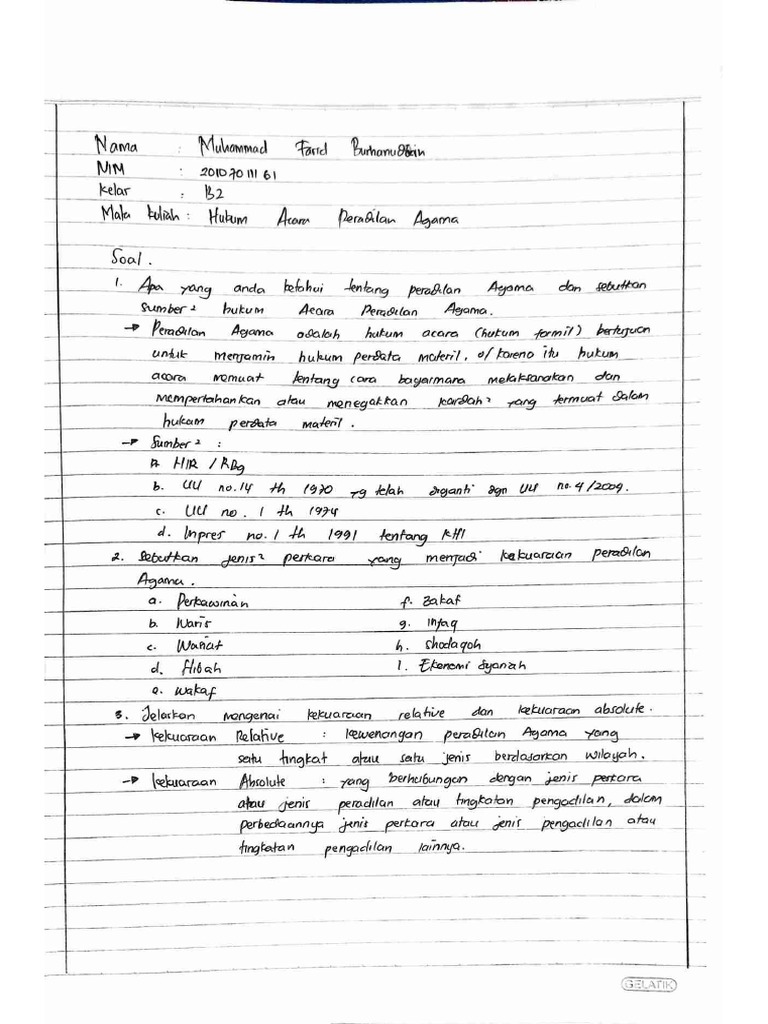 Nama : Muhammad Farid Burhanuddin
NIM : 20107011161
Kelas : B2
Mata kuliah : Hukum Acara Peradilan Agama
Soal .
1. Apa yang anda ketahui tentang peradilan Agama dan sebutkan
sumber² hukum Acara Peradilan Agama.
→ Peradilan Agama adalah hukum acara (hukum formil) bertujuan
untuk menjamin hukum perdata materil, o/ karena itu hukum
acara memuat tentang cara bagaimana melaksanakan dan
mempertahankan atau menegakkan kaidah² yang termuat dalam
hukum perdata materil.
→ Sumber² :
a. HIR / RBg
b. UU no.14 th 1970 yg telah diganti dgn UU no.4/2009.
c. UU no. 1 th 1974
d. Inpres no.1 th 1991 tentang KHI
2. Sebutkan jenis² perkara yang menjadi kekuasaan peradilan
Agama.
a. Perkawinan f. Zakaf
b. Waris g. infaq
c. Wasiat h. shodaqoh
d. Hibah i. Ekonomi Syariah
e. wakaf
3. Jelaskan mengenai kekuasaan relative dan kekuasaan absolute.
→ kekuasaan Relative : kewenangan peradilan Agama yang
satu tingkat atau satu jenis berdasarkan wilayah.
→ kekuasaan Absolute : yang berhubungan dengan jenis perkara
atau jenis peradilan atau tingkatan pengadilan, dalam
perbedaannya jenis perkara atau jenis pengadilan atau
tingkatan pengadilan lainnya.
GELATIK